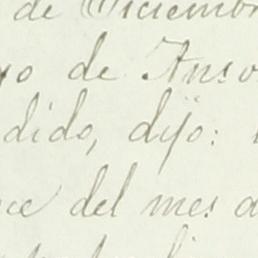 de Diciembr
yo de Anso
dido, dijo:
ce del mes a